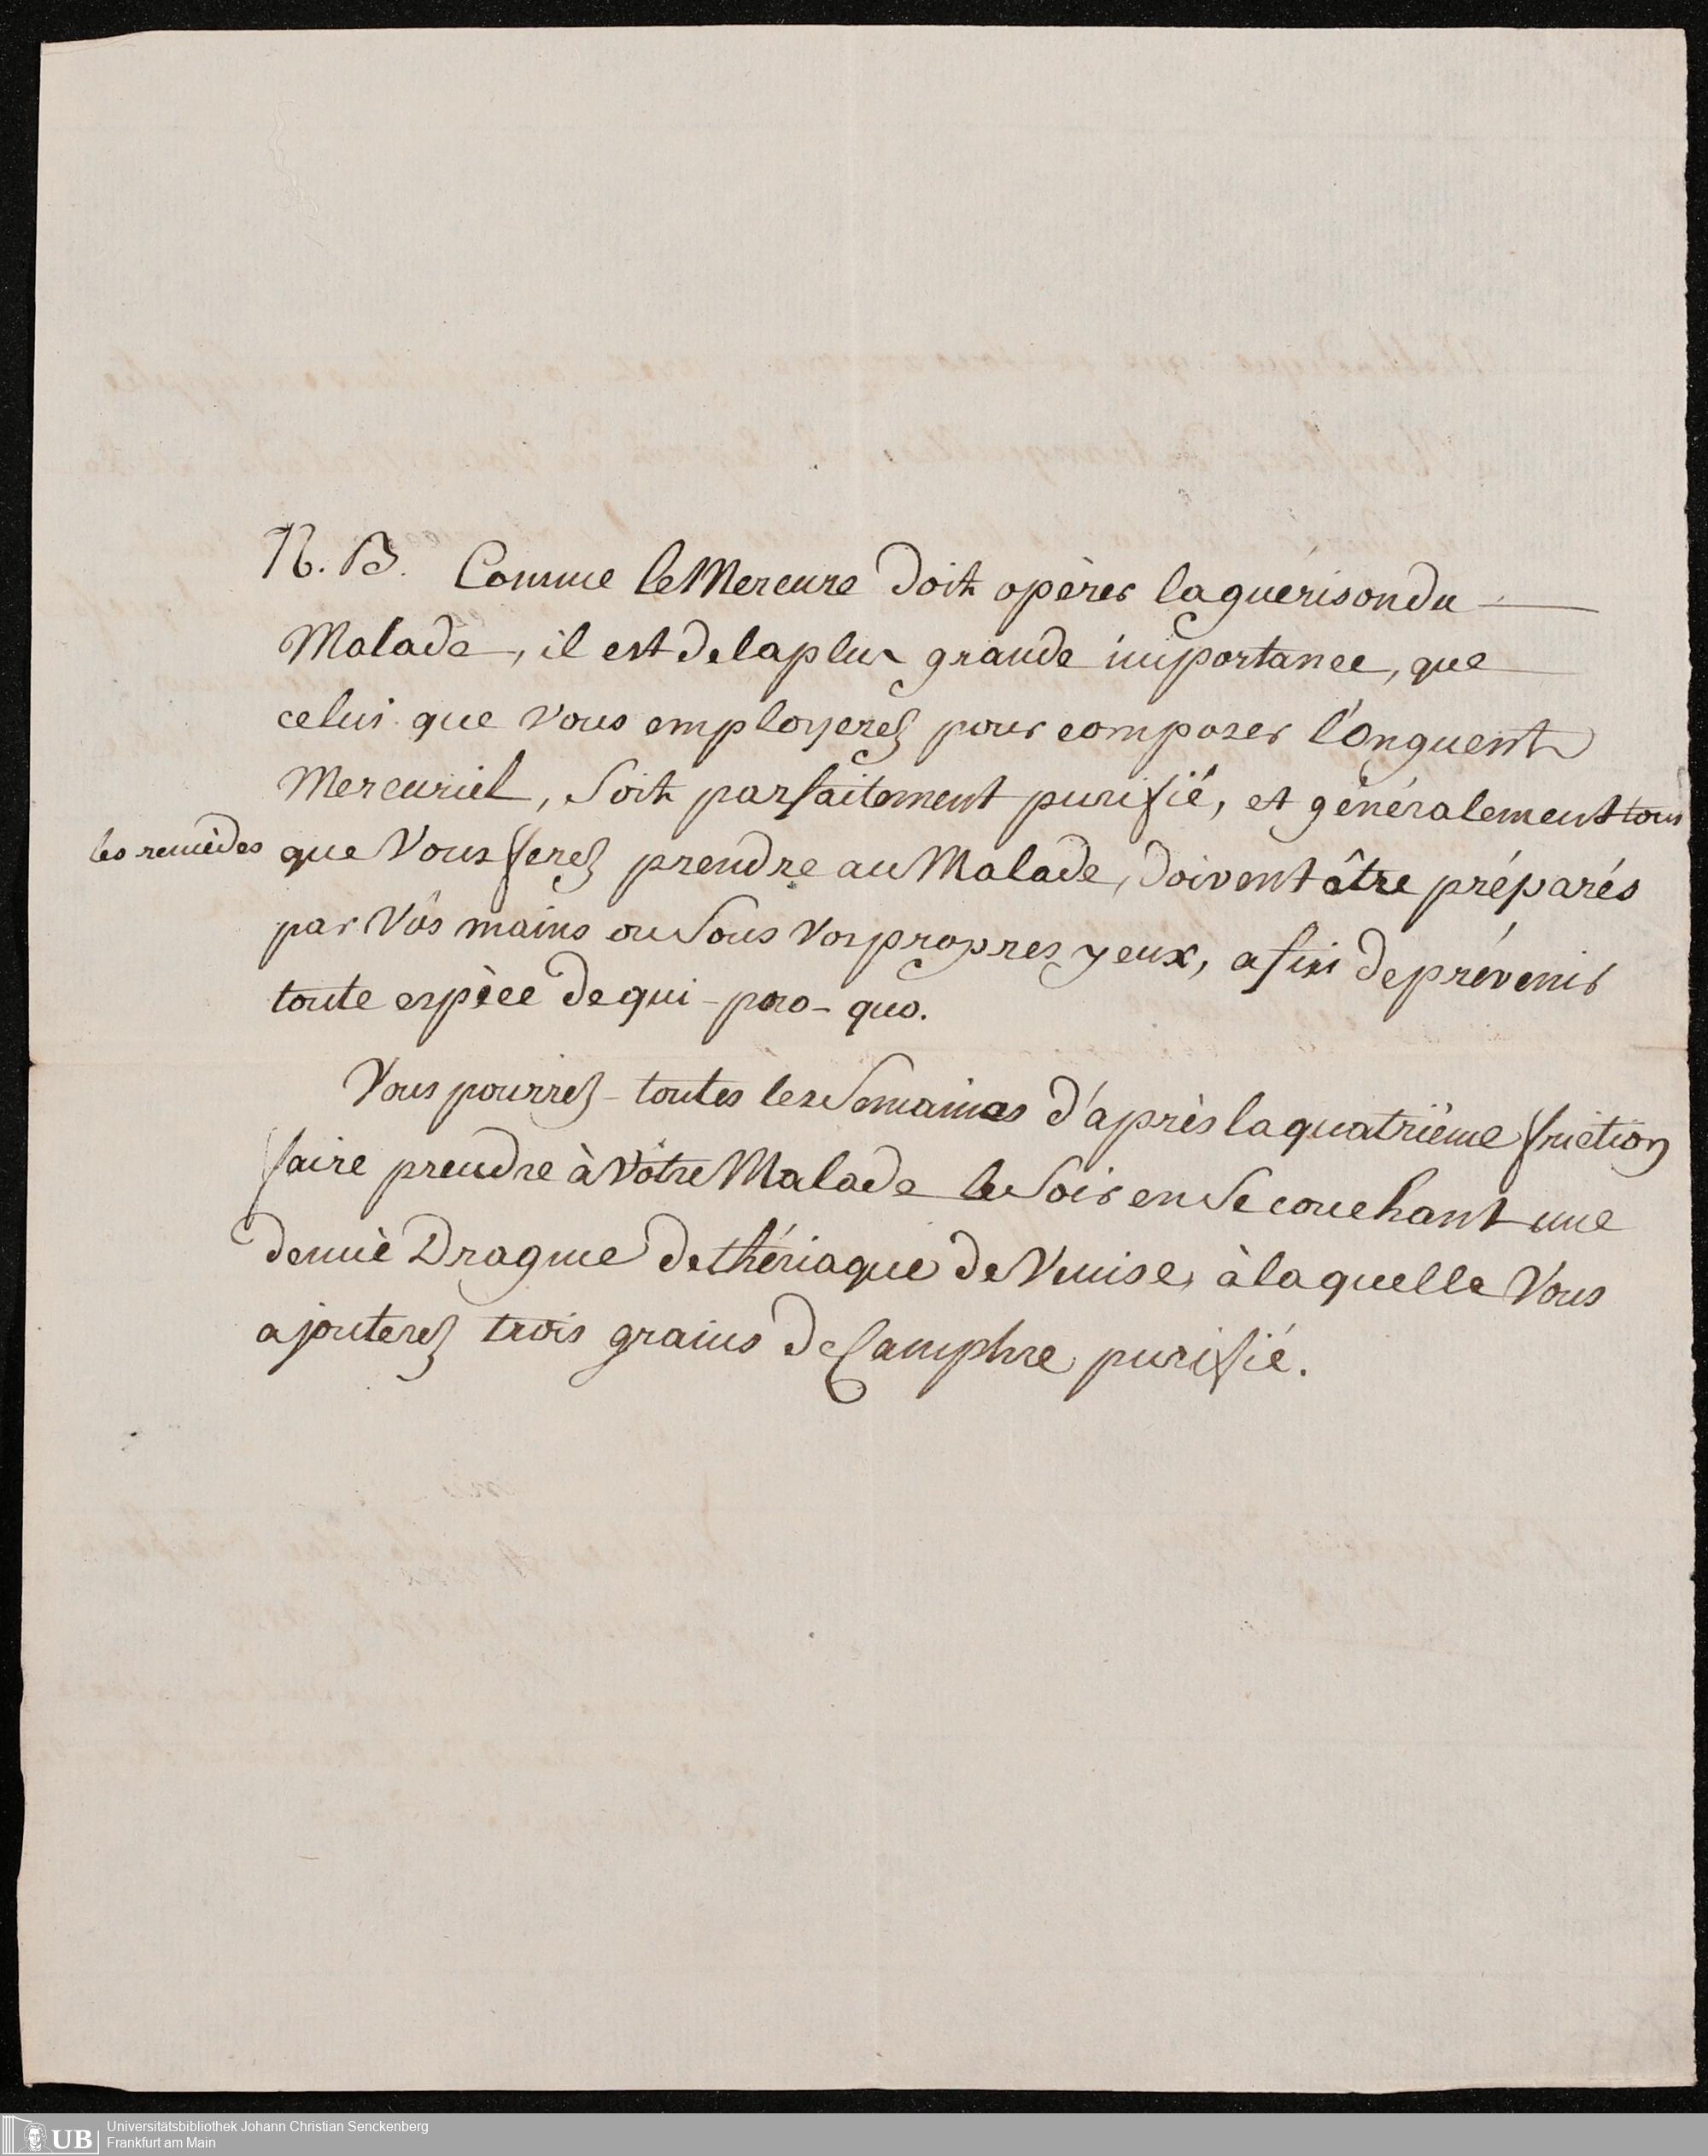 N. B. Comme le Mercure doit opèrer la guérison du
Malade, il est de la plus grande importance, que
celui que Vous employerez pour composer l'Onguent
Mercuriel, Soit parfaitement purifié, et généralement tous
les remèdes que Vous ferez prendre au Malade, doivent être préparés
par Vôs mains ou Sous Vos propres yeux, afin de prévenir
toute espèce de qui-pro-quo.
Vous pourrez toutes les Semaines d'après la quatrième friction
faire prendre à Vôtre Malade le Soir en Se couchant une
demie Dragme de thériaque de Venise, à laquelle Vous
ajouterez trois grains de Camphre purifié.
UB
Universitätsbibliothek Johann Christian Senckenberg
Frankfurt am Main